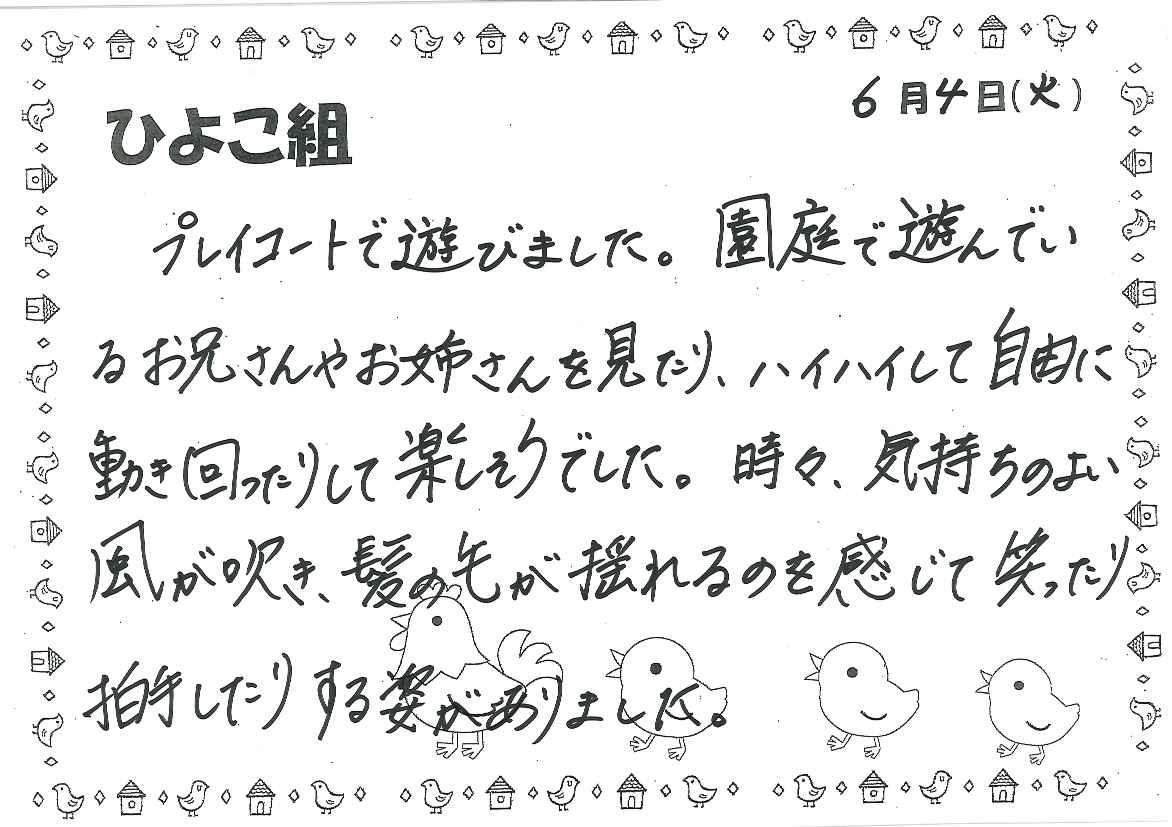 6月4日(火)
ひよこ組
プレイコートで遊びました。園庭で遊んでい
るお兄さんやお姉さんを見たり、ハイハイして自由に
動き回ったりして楽しそうでした。時々、気持ちのよい
風が吹き、髪の毛が揺れるのを感じて笑ったり
拍手したりする姿がありました。